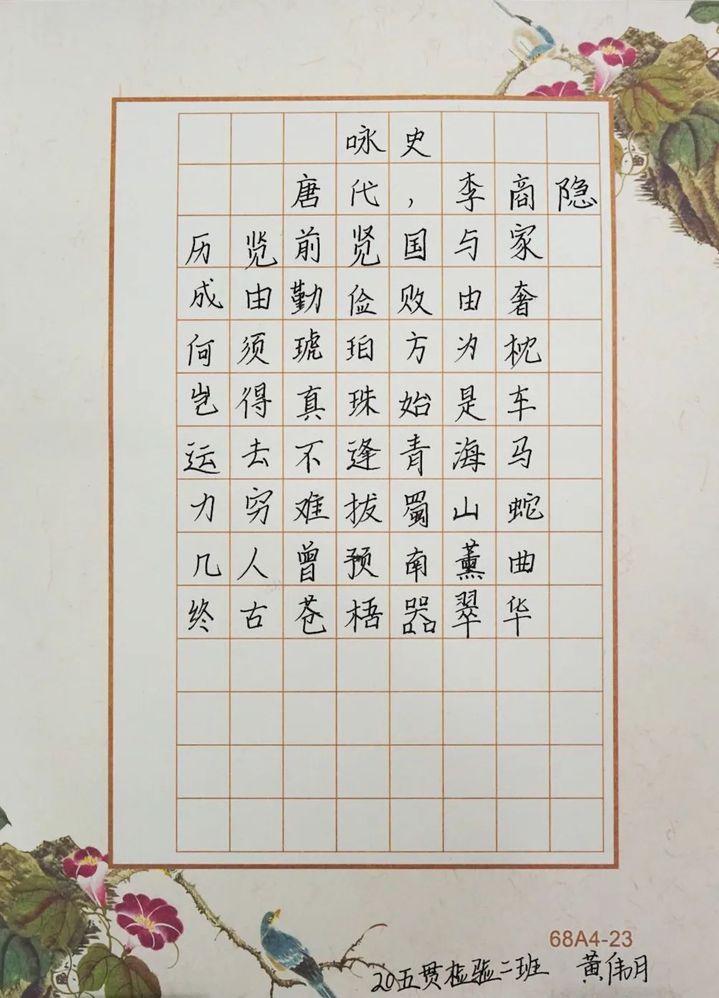 咏史
唐代，李商隐
历览前贤国与家
成由勤俭败由奢
何须琥珀方为枕
岂得真珠始是车
运去不逢青海马
力穷难拔蜀山蛇
几人曾预南薰曲
终古苍梧器翠华
68A4-23
20五贯检验二班 黄伟月